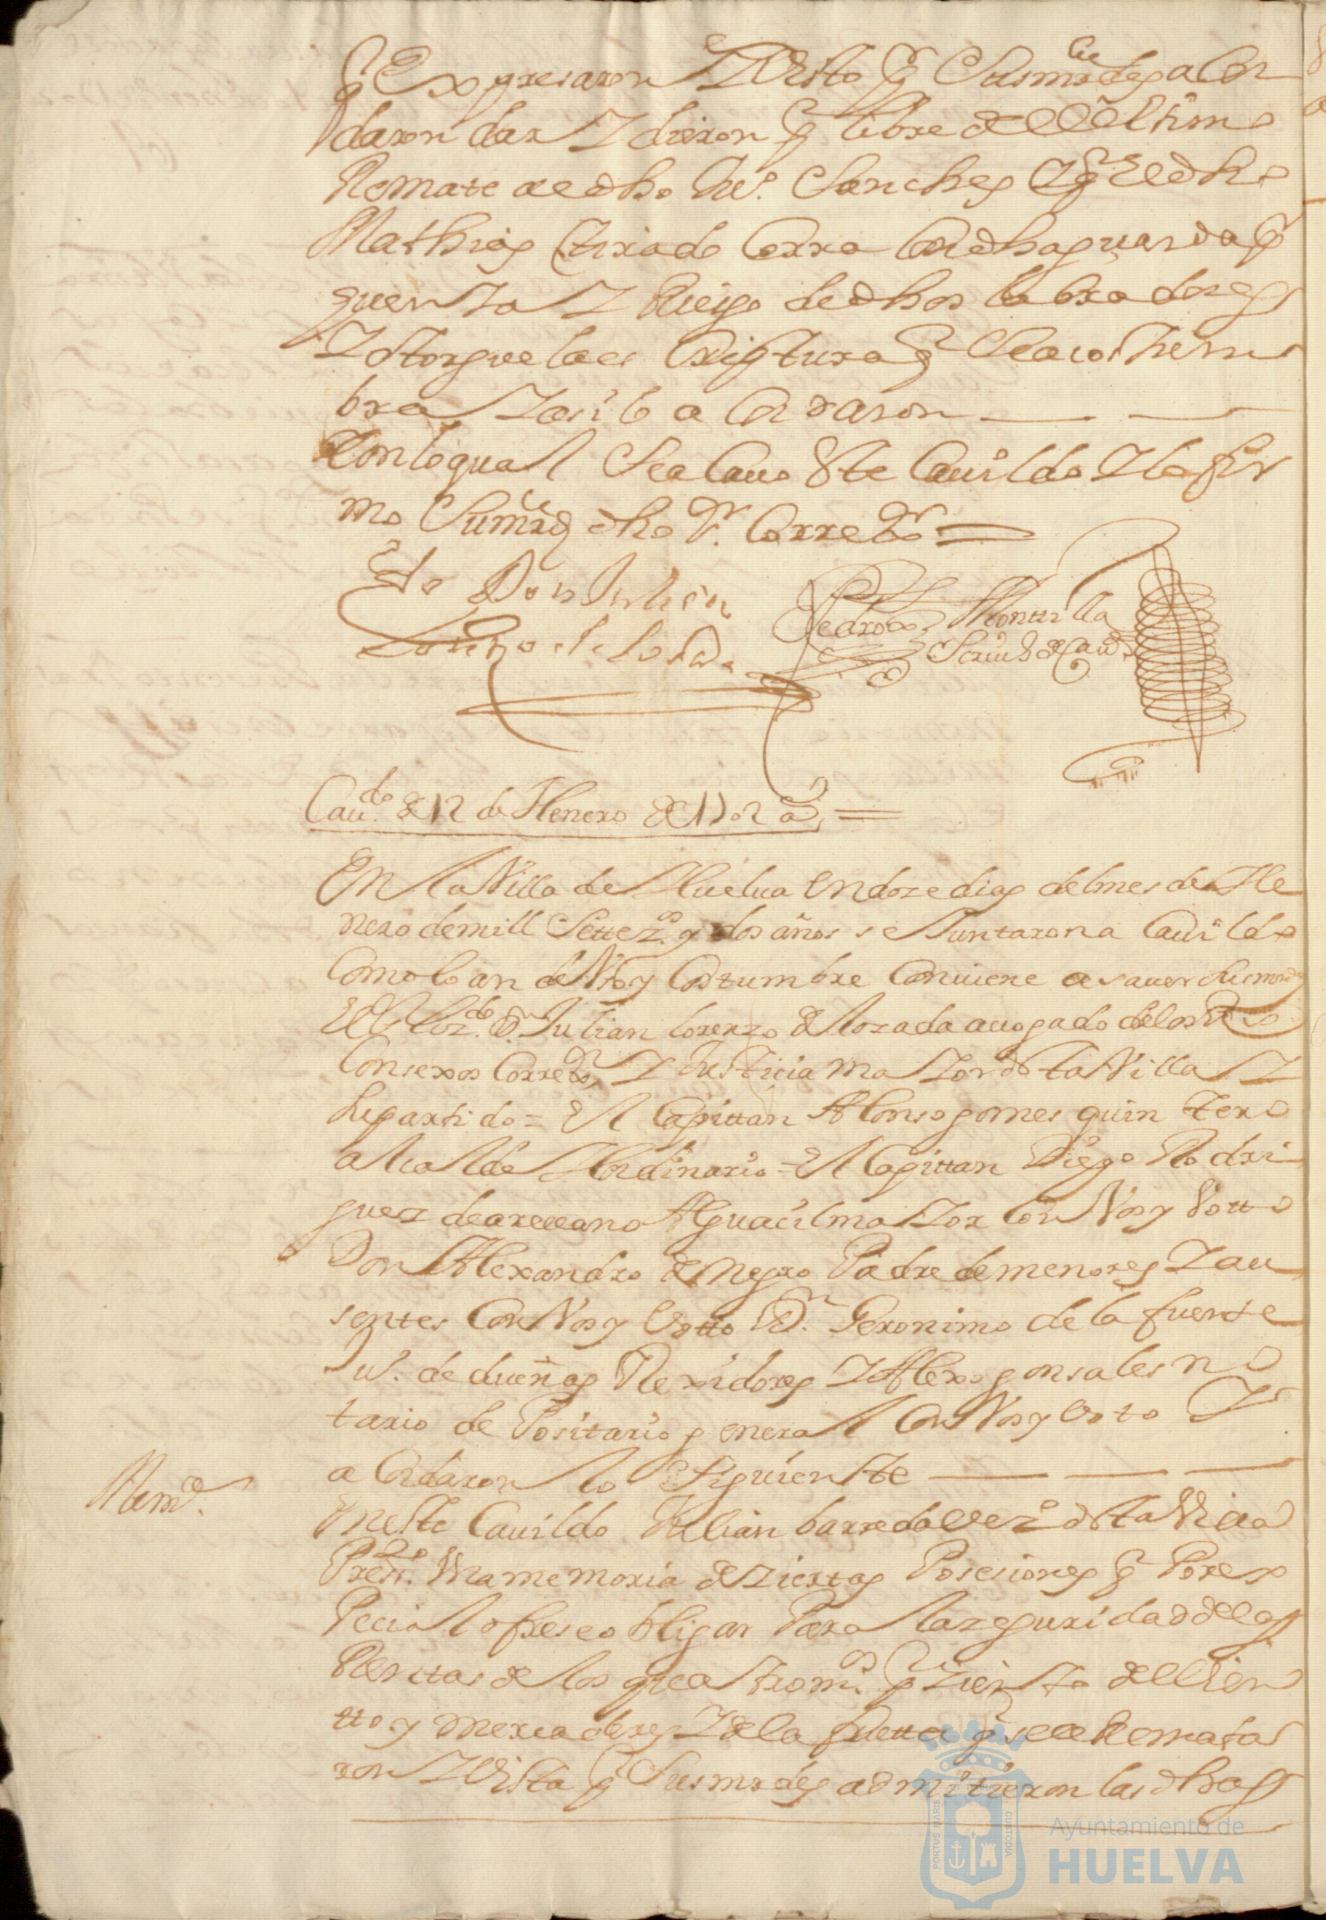 q̃ Expresaron Y Visto q̃ Susmrdes acor
daron dar Y dieron q̃ libre del Ultimo
Remate de dho Ju.º Sanches Y q̃ El dho
Mathias tirado Corra Con dha guarda q̃
quenta Y Riesgo de dhos labradores
Y otorgue la escriptura q̃ se acostum
bra Y asi lo a Cordaron
Con lo qual Se a Cauo Este Cauildo Y lo fir
mo Sumrd dho Sr. Corredor
Ldo Don Julian
Lorenzo de Losada
Pedro de Montilla
Scriu.º de Cau.do
Cau.do de 12 de Henero de 1702 a.s
En la Villa de Huelua en doze dias del mes de He
nero de mill Settez.os y dos años se Juntaron a Cauildo
Como lo an de Vso y Costumbre Conuiene a sauer Susmrdes
El Sr Lizdo. Dn. Julian lorenzo de Lozada auogado de los Rs
Consexos Corredor Y Justicia maYor desta Villa Y
Su partido = El Capittan Alonso gomes quintero
alcalde Hordinario = El Capittan Diego Rodri
guez de arellano Alguacil maYor Con Vos y Votto
Don Alexandro de Negro Padre de menores Y au
sentes Con Vos y Votto Dn. Geronimo de la fuente
Ju.º de dueñas Rexidores Y Alexo gonsales no
tario de Positario general Con Vos y Voto Y
a Cordaron lo Siguiente
Mem.ª
En este Cauildo Julian barreda vez.º desta Villa
Presto. Vna memoria de ziertas Posesiones q̃ Por ex
Pecial ofrese obligar Para la seguridad de las
Rentas de los quatro mi. q̃ ziento del Vien
tto y mercaderes Y de la frutta q̃ se le Remata
ron Y Vista q̃ Susmrdes admitieron las dhas
Ayuntamiento de
HUELVA
PORTUS MARIS
CUSTODIA